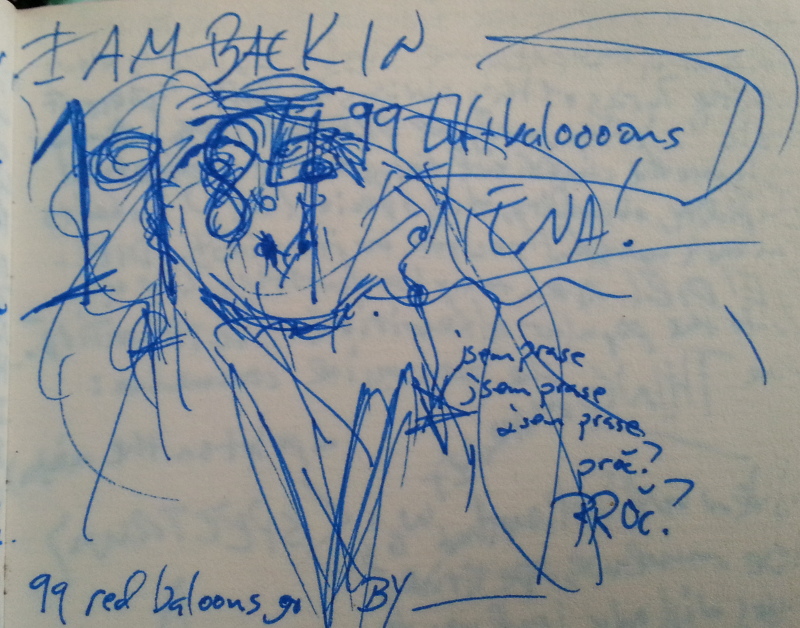 I AM BACK IN
1984
99 Luftbaloooons
NENA!
jsem prase
jsem prase
jsem prase
proč?
PROČ?
99 red baloons go BY